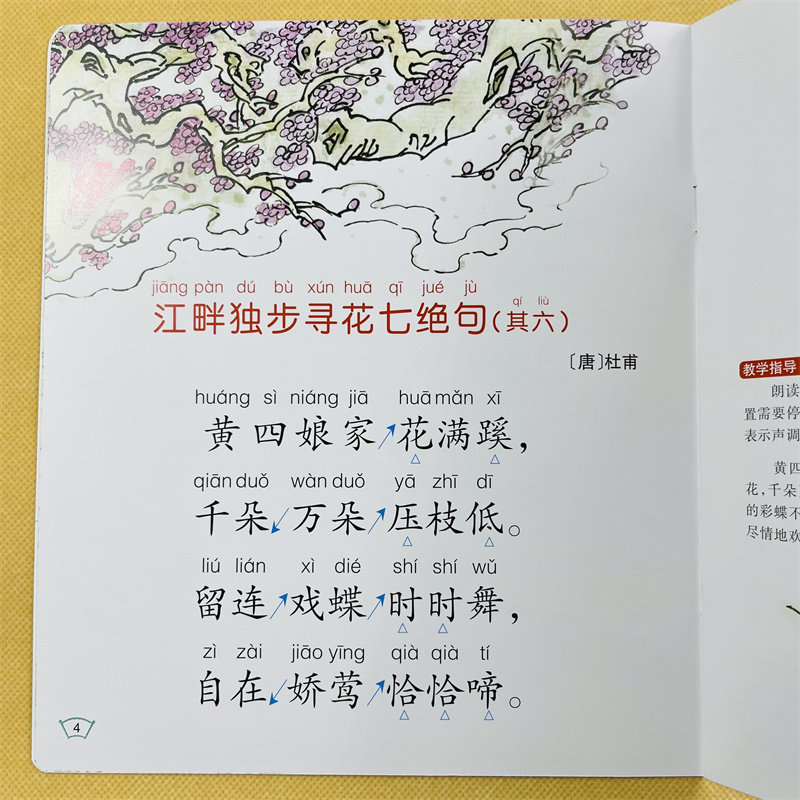 jiāng pàn dú bù xún huā qī jué jù (qí liù)
江畔独步寻花七绝句(其六)
〔唐〕杜甫
huáng sì niáng jiā huā mǎn xī
黄四娘家↗花满蹊,
qiān duǒ wàn duǒ yā zhī dī
千朵↙万朵↗压枝低。
liú lián xì dié shí shí wǔ
留连↗戏蝶↗时时舞,
zì zài jiāo yīng qià qià tí
自在↙娇莺↗恰恰啼。
4
教学指导
朗读
置需要停
表示声调
黄四
花,千朵
的彩蝶不
尽情地欢